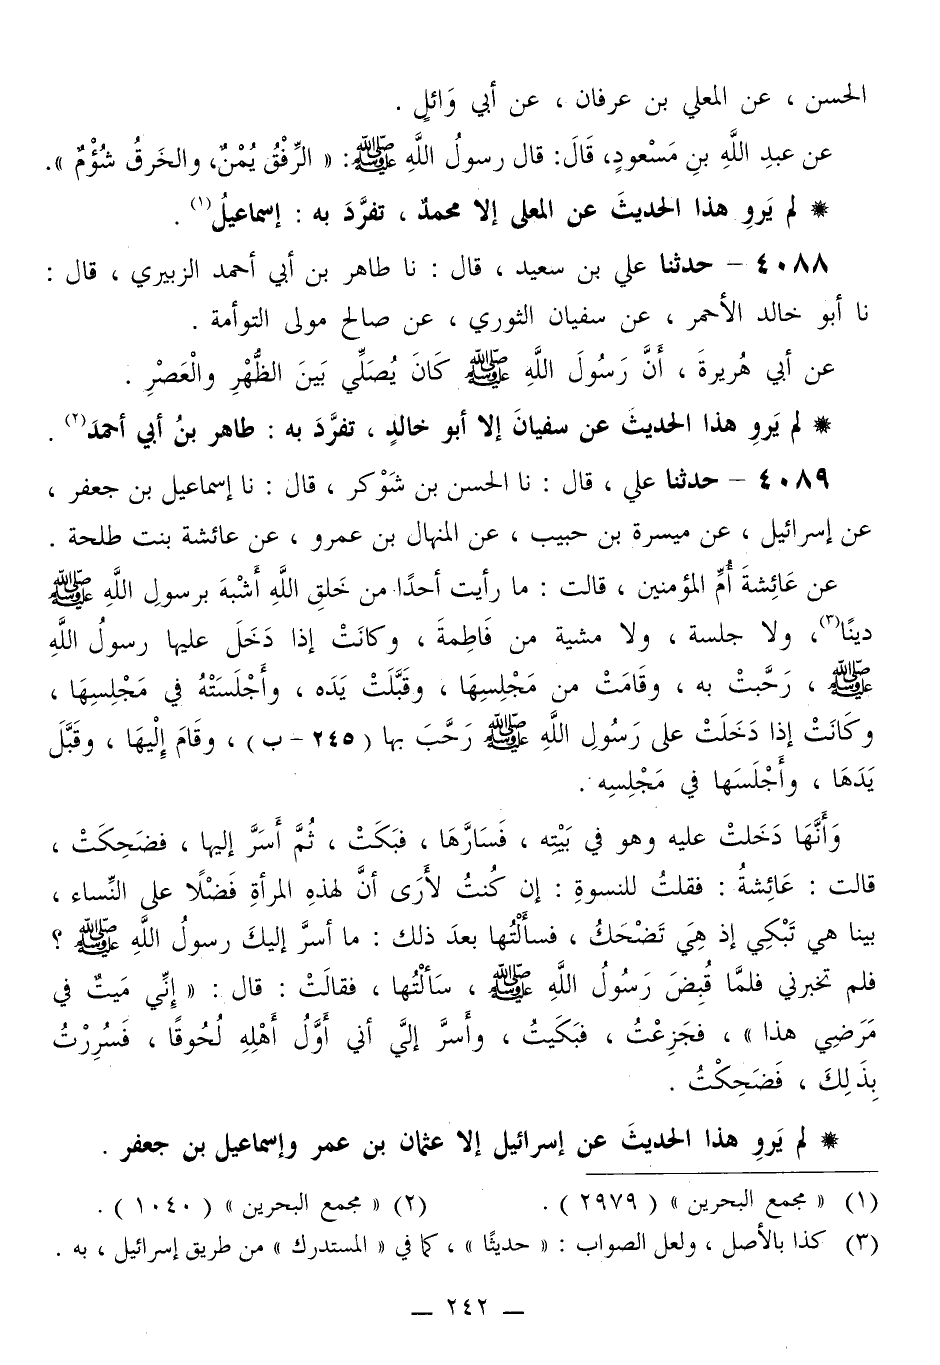 الحسن ، عن المعلي بن عرفان ، عن أبي وَائلٍ .
عن عبدِ اللَّهِ بنِ مَسْعودٍ، قَالَ: قال رسولُ اللَّهِ ﷺ: « الرِّفْقُ يُمْنٌ، والخَرقُ شُؤْمٌ ».
* لم يَروِ هذا الحديثَ عن المعلى إلا محمدٌ ، تفرَّدَ به : إسماعيلُ(١) .
٤٠٨٨ - حدثنا علي بن سعيد ، قال : نا طاهر بن أبي أحمد الزبيري ، قال :
نا أبو خالد الأحمر ، عن سفيان الثوري ، عن صالح مولى التوأمة .
عن أبي هُريرةَ ، أَنَّ رَسُولَ اللَّهِ ﷺ كَانَ يُصَلِّي بَينَ الظُّهْرِ والْعَصْرِ .
* لم يَروِ هذا الحديثَ عن سفيانَ إلا أبو خالدٍ ، تفرَّدَ به : طاهر بنُ أبي أحمدَ(٢) .
٤٠٨٩ - حدثنا علي ، قال : نا الحسن بن شَوْكر ، قال : نا إسماعيل بن جعفر ،
عن إسرائيل ، عن ميسرة بن حبيب ، عن المنهال بن عمرو ، عن عائشة بنت طلحة .
عن عَائِشةَ أُمِّ المؤمنين ، قالت : ما رأيت أحدًا من خَلقِ اللَّهِ أَشْبهَ برسولِ اللَّهِ ﷺ
دينًا(٣)، ولا جلسة ، ولا مشية من فَاطِمةَ ، وكانَتْ إذا دَخَلَ عليها رسولُ اللَّهِ
ﷺ ، رَحَّبتْ به ، وقَامَتْ من مَجْلِسِهَا ، وقَبَّلَتْ يَدَه ، وأَجْلَسَتْهُ في مَجْلِسِهَا ،
وكَانَتْ إذا دَخَلَتْ على رَسُولِ اللَّهِ ﷺ رَحَّبَ بها ( ٢٤٥ - ب ) ، وقَامَ إِلَيهَا ، وقبَّلَ
يَدَهَا ، وأَجْلَسَها في مَجْلِسِه .
وَأَنَّهَا دَخَلتْ عليه وهو في بَيْتِه ، فَسَارَّهَا ، فبَكَتْ ، ثُمَّ أَسَرَّ إليها ، فضَحِكَتْ ،
قالت : عَائِشةُ : فقلتُ للنسوةِ : إن كُنتُ لأَرَى أنَّ لهذهِ المرأةِ فَضْلًا على النِّساء ،
بينا هي تَبْكِي إذ هِيَ تَضْحَكُ ، فسأَلْتُها بعدَ ذلك : ما أسرَّ إليكَ رسولُ اللَّهِ ﷺ ؟
فلم تخبرني فلمَّا قُبِضَ رَسُولُ اللَّهِ ﷺ ، سَأَلْتُها ، فقالَتْ : قال : « إِنِّي مَيتٌ في
مَرَضِي هذا » ، فجَزِعْتُ ، فبَكَيتُ ، وأَسرَّ إليَّ أني أوَّلُ أَهْلِهِ لُحُوقًا ، فَسُرِرْتُ
بِذَلِكَ ، فَضَحِكْتُ .
* لم يَروِ هذا الحديثَ عن إسرائيل إلا عثمان بن عمر وإسماعيل بن جعفر .
(١) « مجمع البحرين » ( ٢٩٧٩ ) . (٢) « مجمع البحرين » ( ١٠٤٠ ) .
(٣) كذا بالأصل ، ولعل الصواب : « حديثًا » ، كما في « المستدرك » من طريق إسرائيل ، به .
— ٢٤٢ —